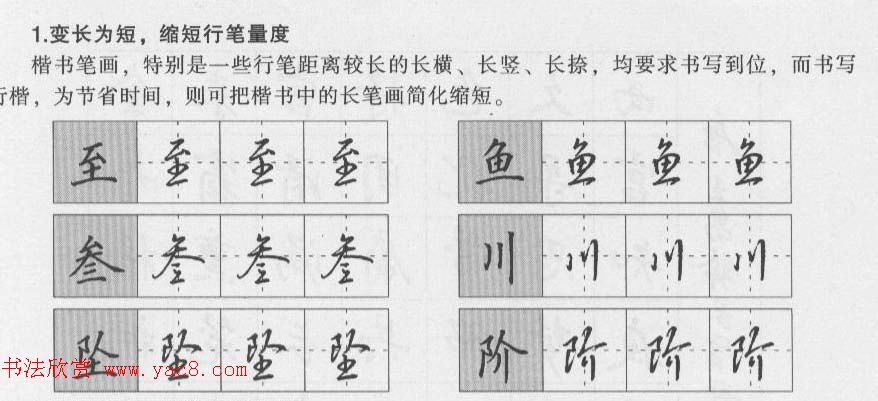 1.变长为短，缩短行笔量度
楷书笔画，特别是一些行笔距离较长的长横、长竖、长捺，均要求书写到位，而书写
行楷，为节省时间，则可把楷书中的长笔画简化缩短。
至 至 至 至 鱼 鱼 鱼 鱼
叁 叁 叁 叁 川 川 川 川
坠 坠 坠 坠 阶 阶 阶 阶
书法欣赏 www.yac8.com